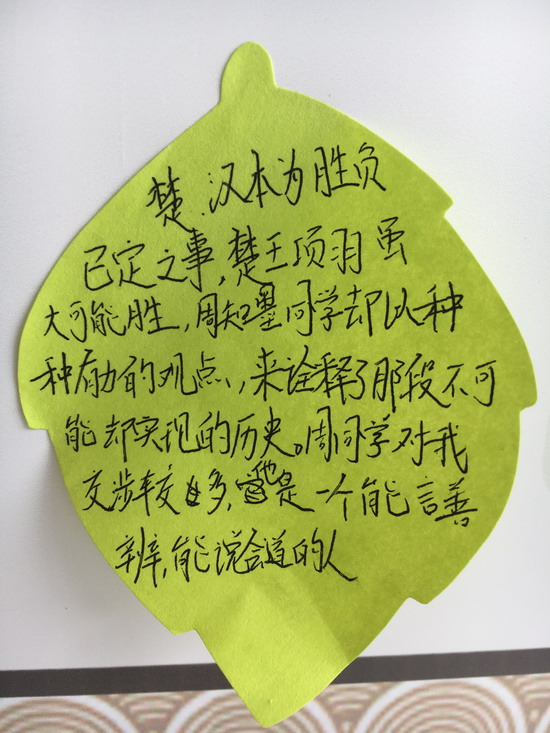 楚.汉本为胜负
已定之事,楚王项羽虽
大可能胜,周知墨同学却以种
种有力的观点,来诠释了那段不可
能却实现的历史。周同学对我
交涉较多,他是一个能言善
辨,能说会道的人